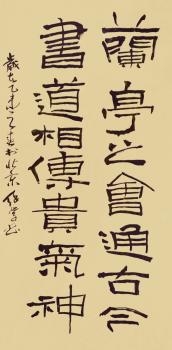 蘭亭之會通古今
書道相傳貴氣神
歲在乙未之春於北京